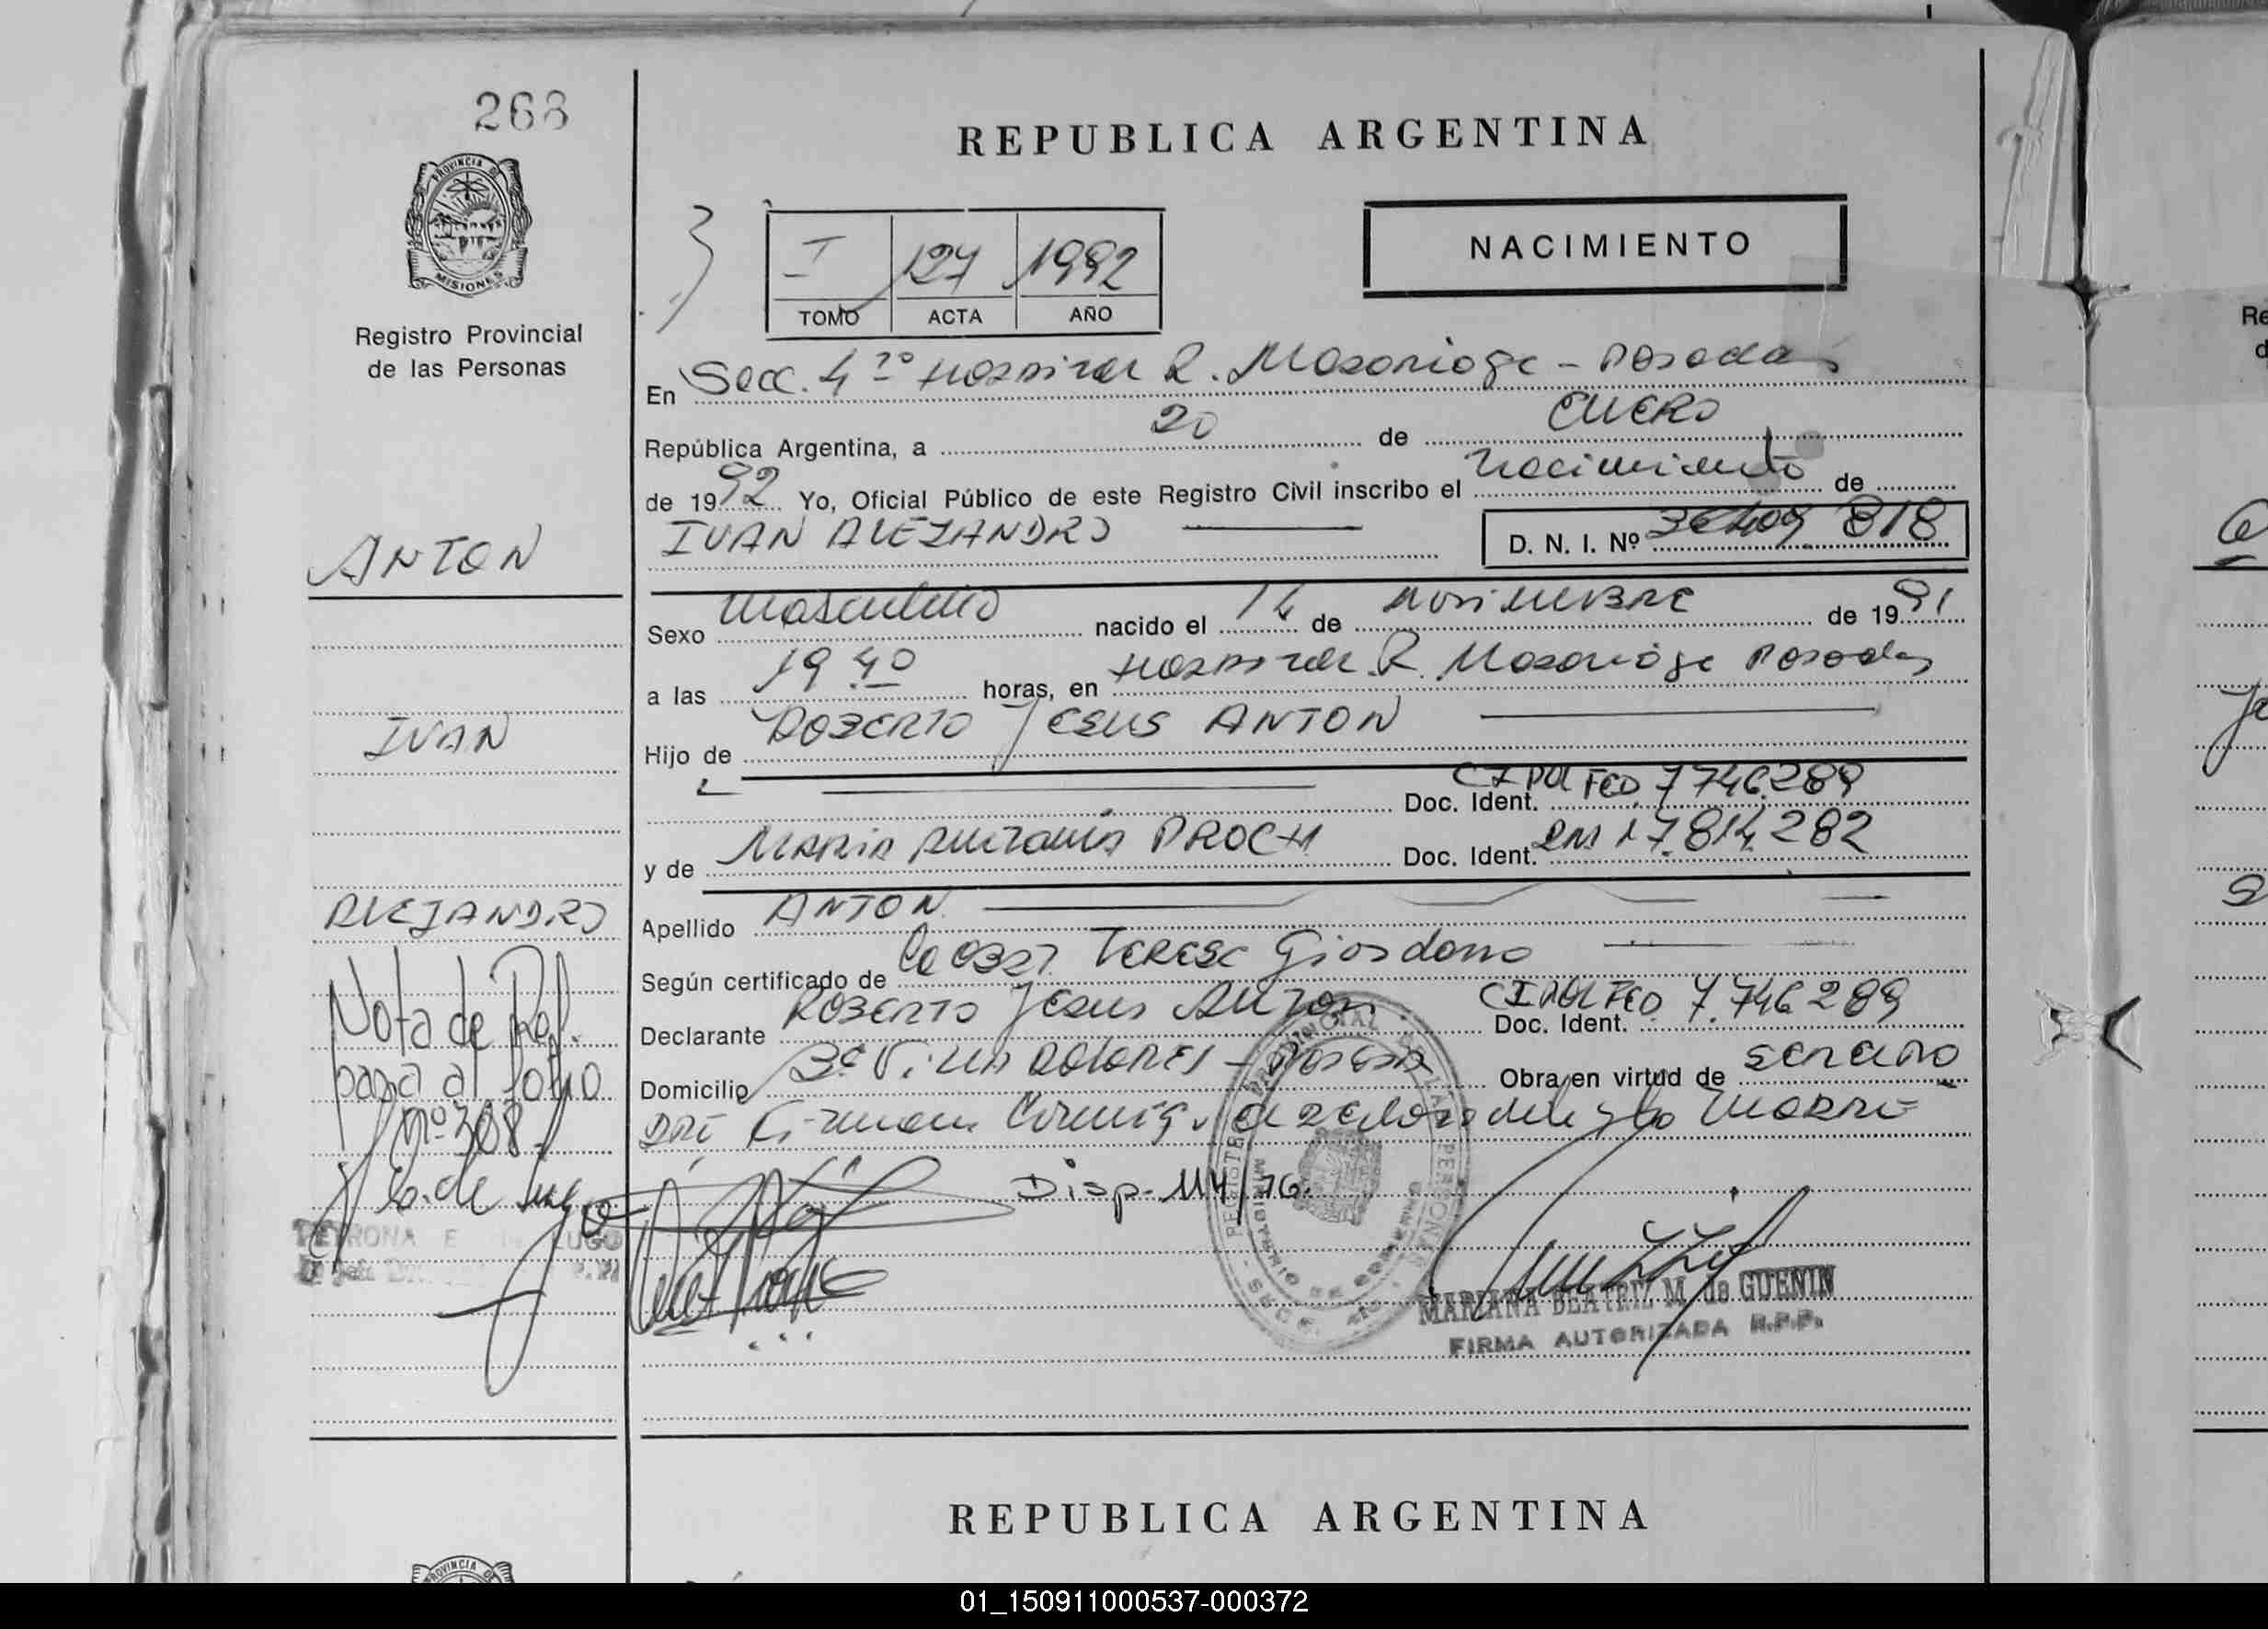 268
REPUBLICA ARGENTINA
PROVINCIA DE
MISIONES
Registro Provincial
de las Personas
I 127 1992
TOMO ACTA AÑO
NACIMIENTO
En Secc. 4ta Hospital R. Madariaga - Posadas
República Argentina, a 20 de ENERO
de 1992 Yo, Oficial Público de este Registro Civil inscribo el nacimiento de
IVAN ALEJANDRO D. N. I. Nº 818
ANTON
Sexo masculino nacido el 14 de noviembre de 1991
a las 19 40 horas, en Hospital R. Madariaga Posadas
IVAN
Hijo de ROBERTO JESUS ANTON
Doc. Ident. CI POL FED. 7746.289
y de MARIA PROCH Doc. Ident. 17.814.282
ALEJANDRO
Apellido ANTON
Según certificado de Teresa Giordano
Declarante ROBERTO Jesus ANTON Doc. Ident. CI POL FED. 7.746289
Domicilio VILLA DOLORES - Posadas Obra en virtud de
Nota de Ref.
pasa al folio
nº 308
Disp. 114/76.
PETRONA E LUGO
MARIANA BEATRIZ M. de GUENIN
FIRMA AUTORIZADA R.P.P.
REPUBLICA ARGENTINA
PROVINCIA DE
01_150911000537-000372